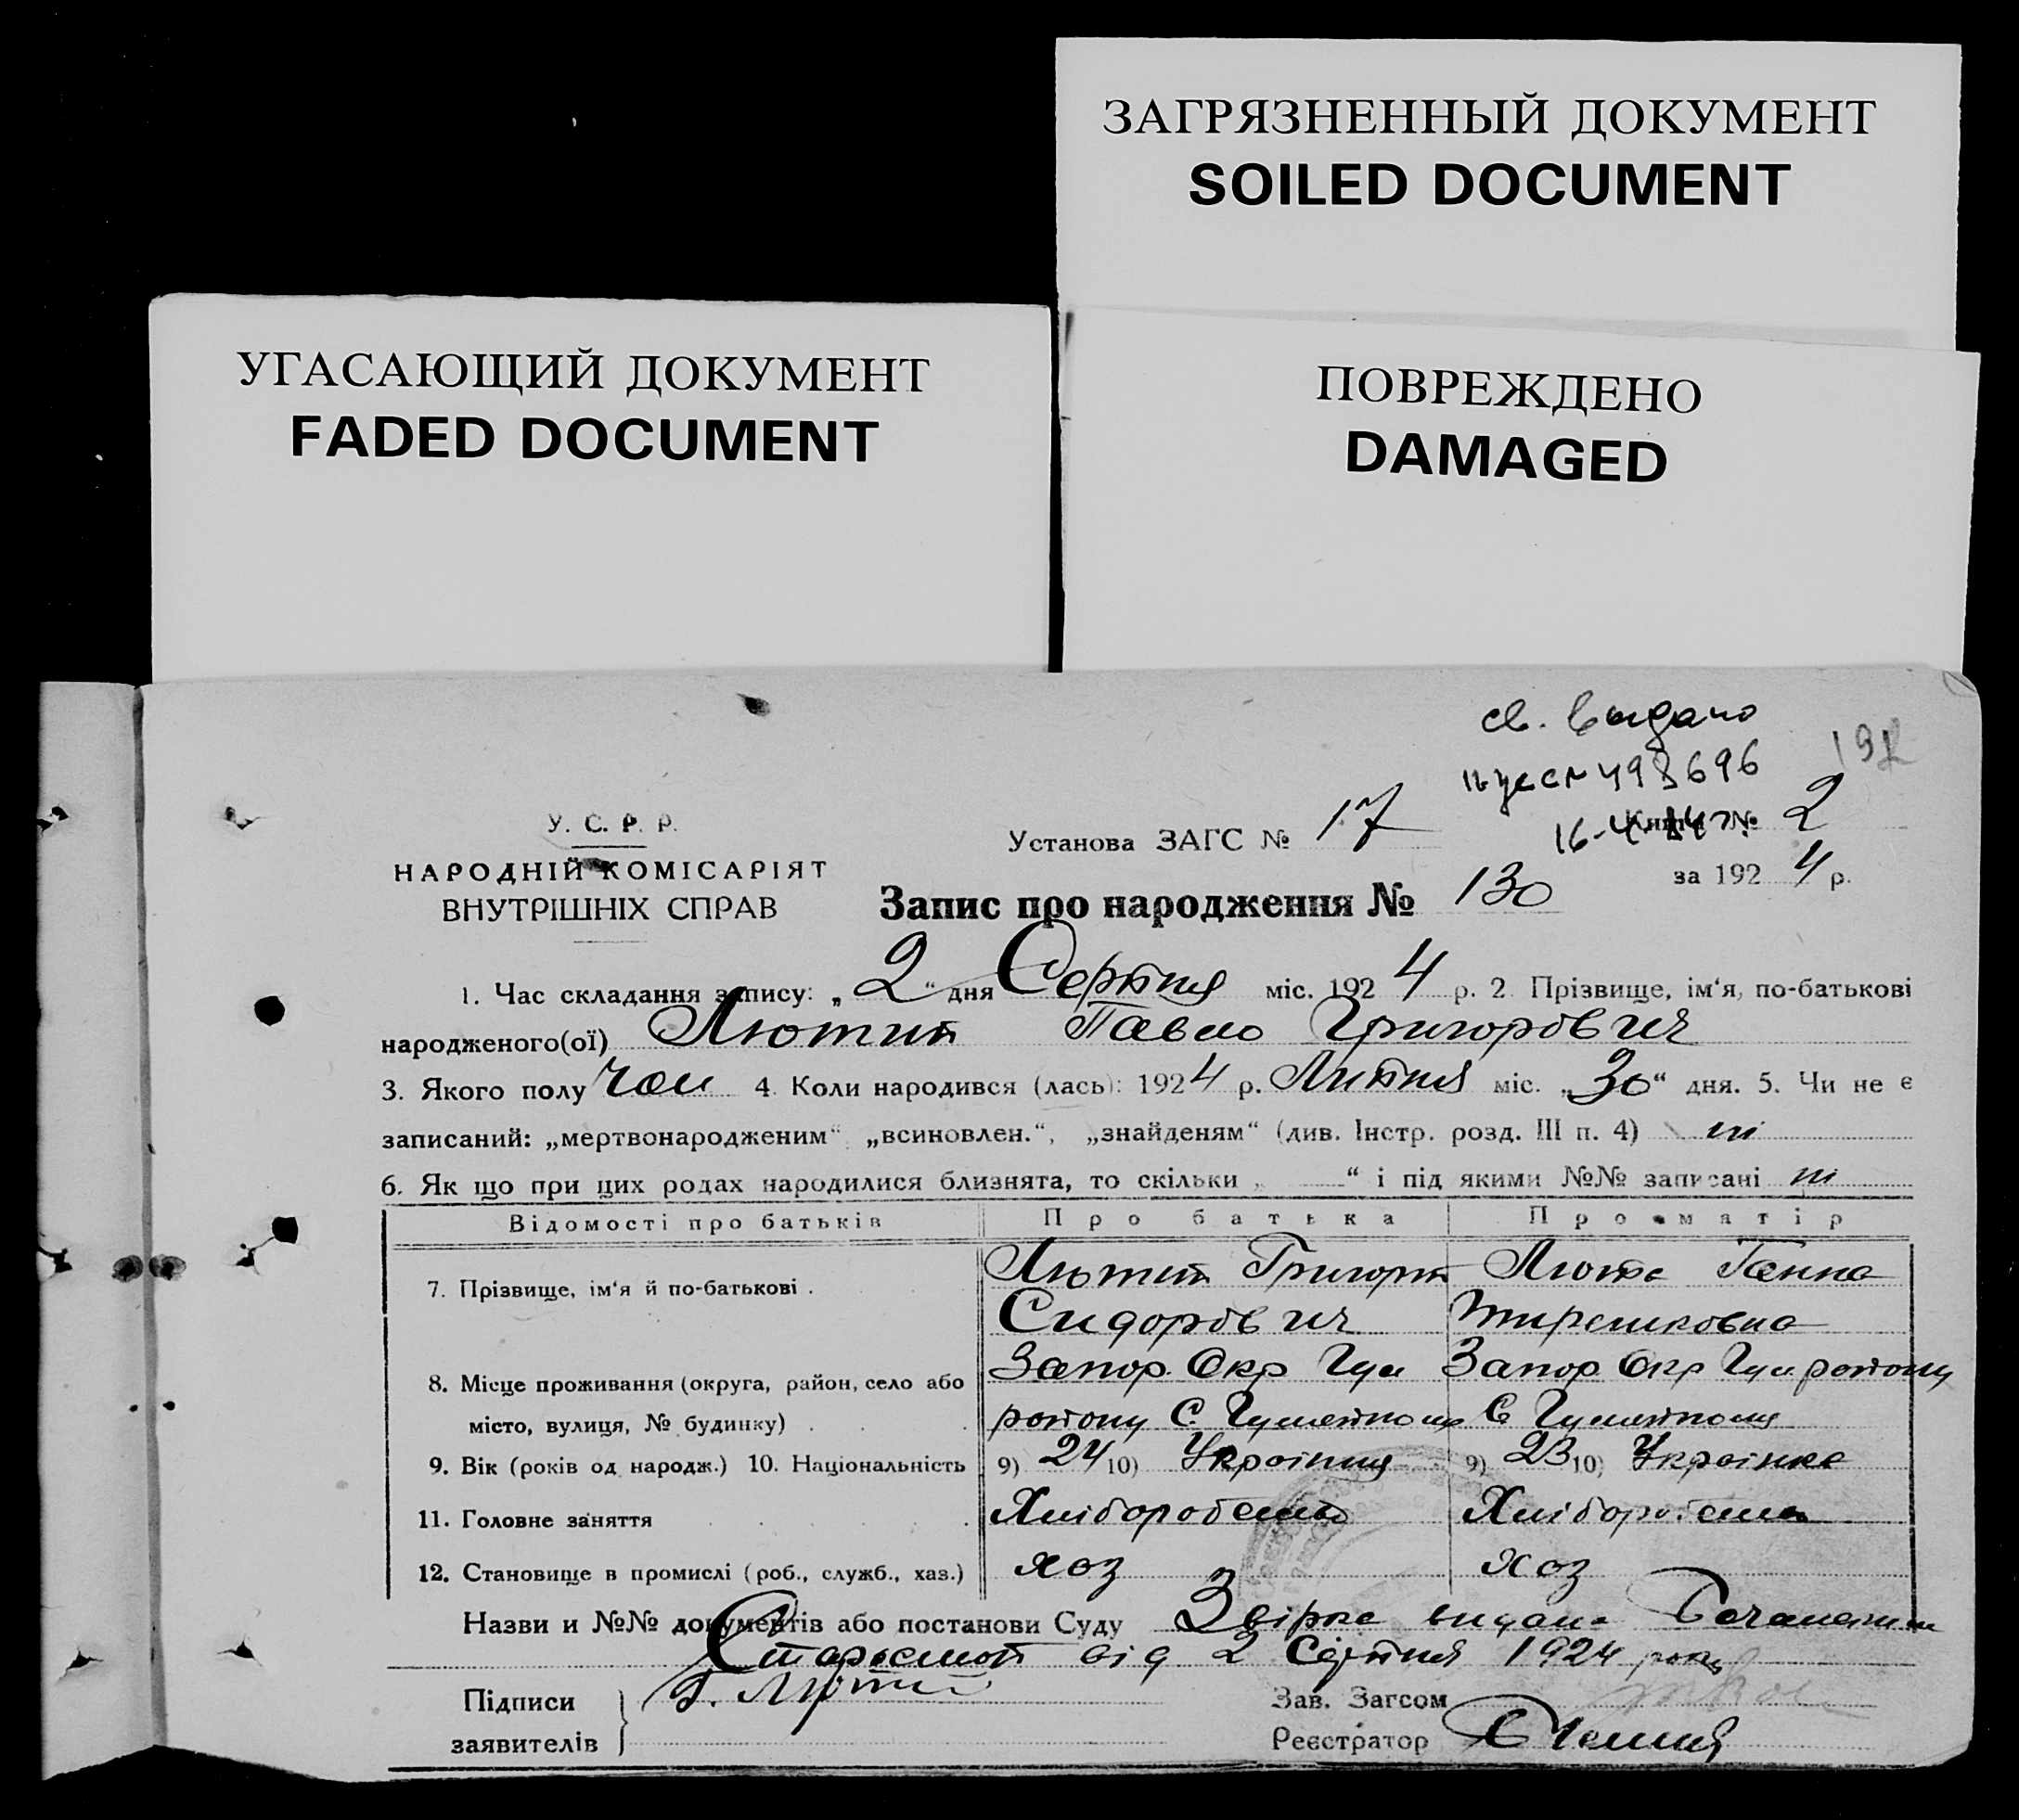 ЗАГРЯЗНЕННЫЙ ДОКУМЕНТ
SOILED DOCUMENT
УГАСАЮЩИЙ ДОКУМЕНТ
FADED DOCUMENT
ПОВРЕЖДЕНО
DAMAGED
св. выдано
498696
У. С. Р. Р.
Установа ЗАГС № 17
Книга № 2
НАРОДНІЙ КОМІСАРІЯТ
за 1924 р.
ВНУТРІШНІХ СПРАВ
Запис про народження № 130
1. Час складання запису: „2“ дня Серпня міс. 1924 р. 2. Прізвище, ім‘я, по-батькові
народженого(ої) Лютий Павло Григорович
3. Якого полу чол 4. Коли народився (лась): 1924 р. Липня міс. „30“ дня. 5. Чи не є
записаний: „мертвонародженим“ „всиновлен.“, „знайденям“ (див. Інстр. розд. III п. 4) ні
6. Як що при цих родах народилися близнята, то скільки „ “ і під якими №№ записані ні
Відомості про батьків Про батька Про матір
7. Прізвище, ім‘я й по-батькові . Лютий Григорій Люта Ганна
Сидорович
8. Місце проживання (округа, район, село або Запор. Окр Гул Запор. Окр Гул. району
місто, вулиця, № будинку) . району С. С
9. Вік (років од народж.) 10. Національність 9) 24 10) Українця 9) 23 10) Українка
11. Головне заняття Хліборобство Хліборобство
12. Становище в промислі (роб., служб., хаз.) хоз хоз
Назви и №№ документів або постанови Суду Звірка видана
від 2 Серпня 1924 року
Підписи Г. Лютий Зав. Загсом
заявителів Реєстратор